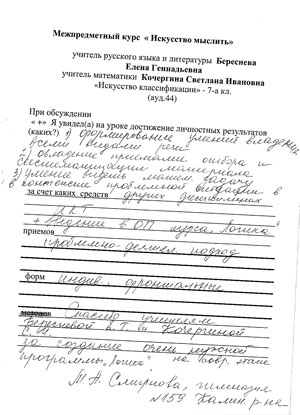 Межпредметный курс « Искусство мыслить»
учитель русского языка и литературы Береснева
Елена Геннадьевна
учитель математики Кочергина Светлана Ивановна
«Искусство классификации» - 7-а кл.
(ауд.44)
При обсуждении
« +» Я увидел(а) на уроке достижение личностных результатов
(каких?) 1) формирование умений владения
всеми видами речи
2) овладение приемами отбора и
систематизации материала
3) умение видеть задачу
в контексте проблемной ситуации в
за счет каких средств других дисциплинах
ИКТ
+ Ведение в ОП курса „Логика"
приемов
проблемно-деят. подход
форм индив., фронтальные
методов Спасибо учителям
Бересневой Е.Г. и Кочергиной
С.И.
за создание очень нужной
программы „Логика" на совр. этапе
М.А. Смирнова, гимназия
№159 Калин. р-на